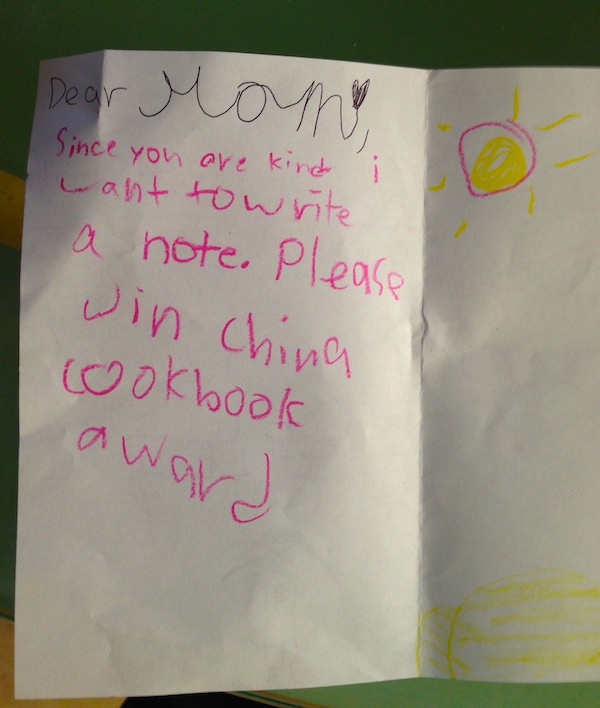 Dear Mom,
Since you are kind i
want to write
a note. Please
win china
cookbook
award